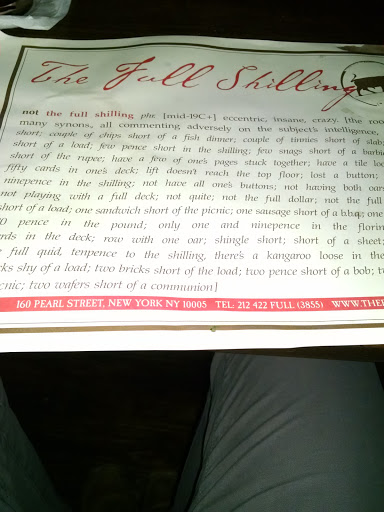 The Full Shilling
not the full shilling phr [mid-19C+] eccentric, insane, crazy. [the
many synons, all commenting adversely on the subject's intelligence,
short; couple of chips short of a fish dinner; couple of tinnies short of slab;
short of a load; few pence short in the shilling; few snags short of a
short of the rupee; have a few of one's pages stuck together; have a tile
fifty cards in one's deck; lift doesn't reach the top floor; lost a button;
ninepence in the shilling; not have all one's buttons; not having both oars
not playing with a full deck; not quite; not the full dollar; not the full
short of a load; one sandwich short of the picnic; one sausage short of a b.b.q; one
pence in the pound; only one and ninepence in the florin
in the deck; row with one oar; shingle short; short of a sheet;
full quid, tenpence to the shilling, there's a kangaroo loose in the
shy of a load; two bricks short of the load; two pence short of a bob;
two wafers short of a communion]
160 PEARL STREET, NEW YORK NY 10005 TEL: 212 422 FULL (3855)